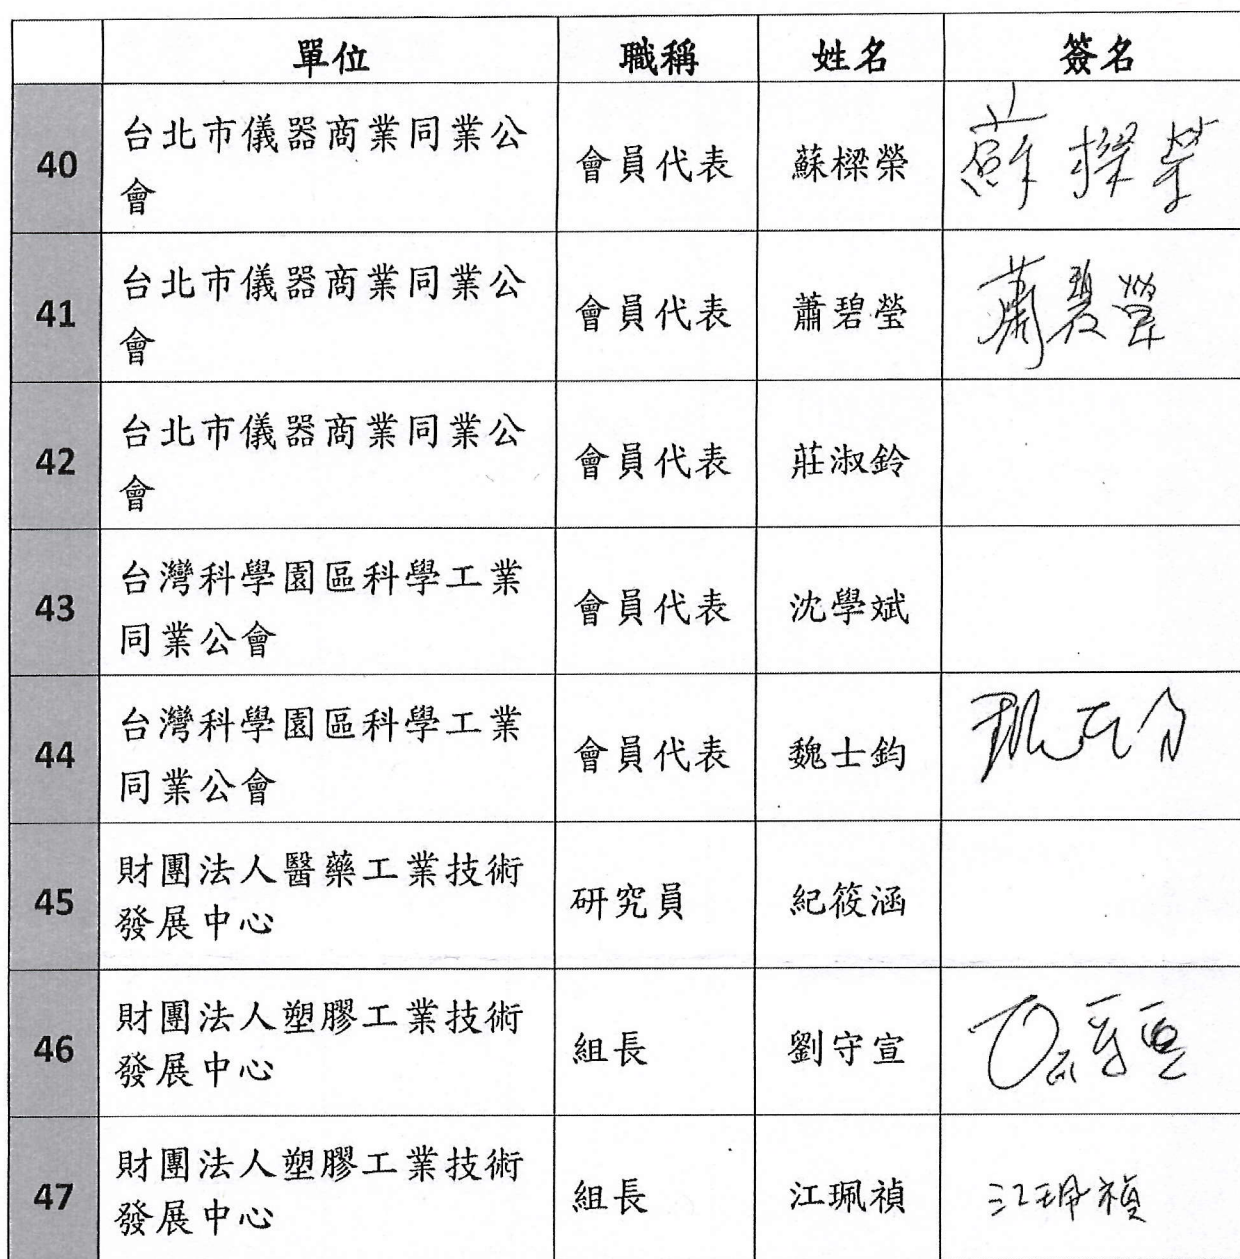 單位 職稱 姓名 簽名
40 台北市儀器商業同業公
會 會員代表 蘇樑榮 蘇樑榮
41 台北市儀器商業同業公
會 會員代表 蕭碧瑩 蕭碧瑩
42 台北市儀器商業同業公
會 會員代表 莊淑鈴
43 台灣科學園區科學工業
同業公會 會員代表 沈學斌
44 台灣科學園區科學工業
同業公會 會員代表 魏士鈞
45 財團法人醫藥工業技術
發展中心 研究員 紀筱涵
46 財團法人塑膠工業技術
發展中心 組長 劉守宣
47 財團法人塑膠工業技術
發展中心 組長 江珮禎 江珮禎